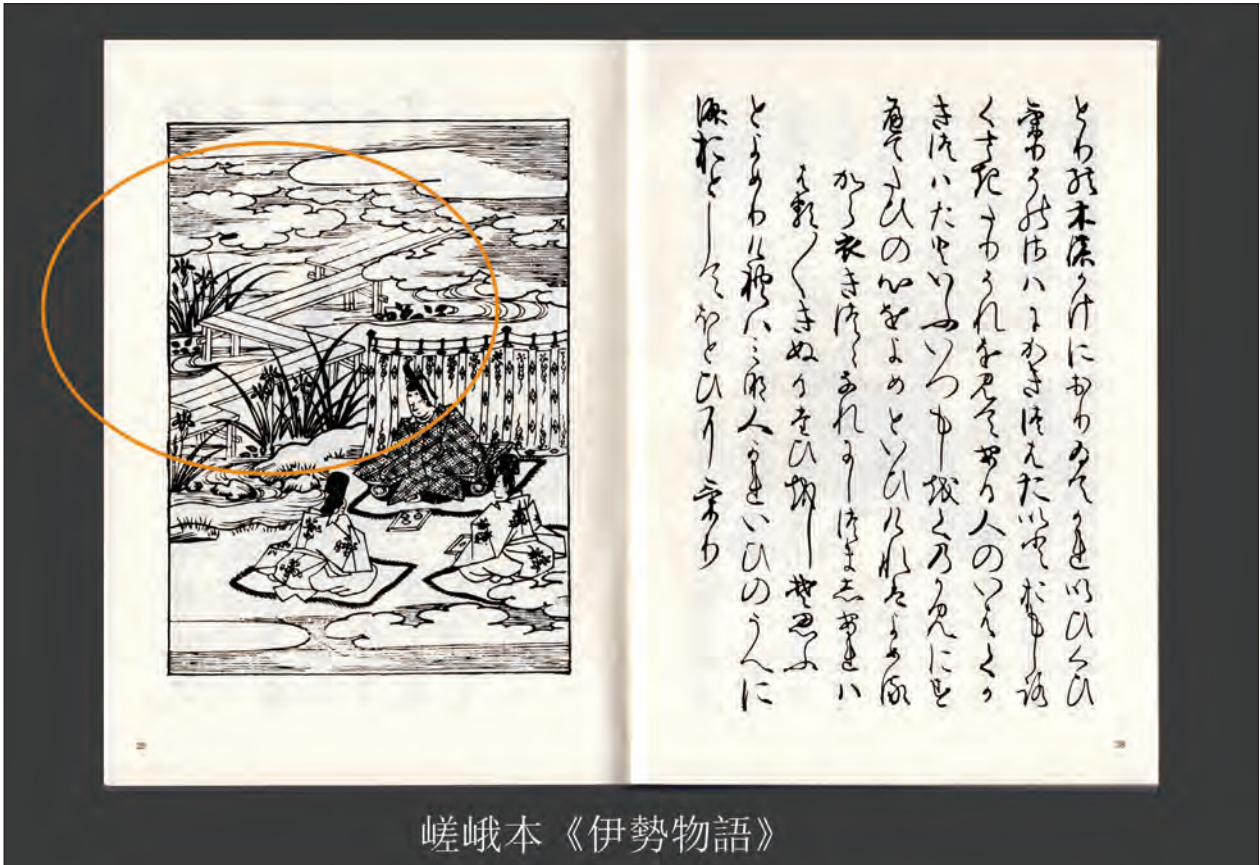 とりの木のかけにおりゐてかれいひくひ
けりその沢にかきつはたいとおもしろ
くさきたりそれを見てある人のいはくか
きつはたといふいつもしをくのかみにす
へてたひの心をよめといひけれはよめる
から衣きつゝなれにしつましあれは
はる〳〵きぬるたひをしそ思ふ
とよめりけれはみな人かれいひのうへに
涙おとしてほとひにけり
嵯峨本《伊勢物語》